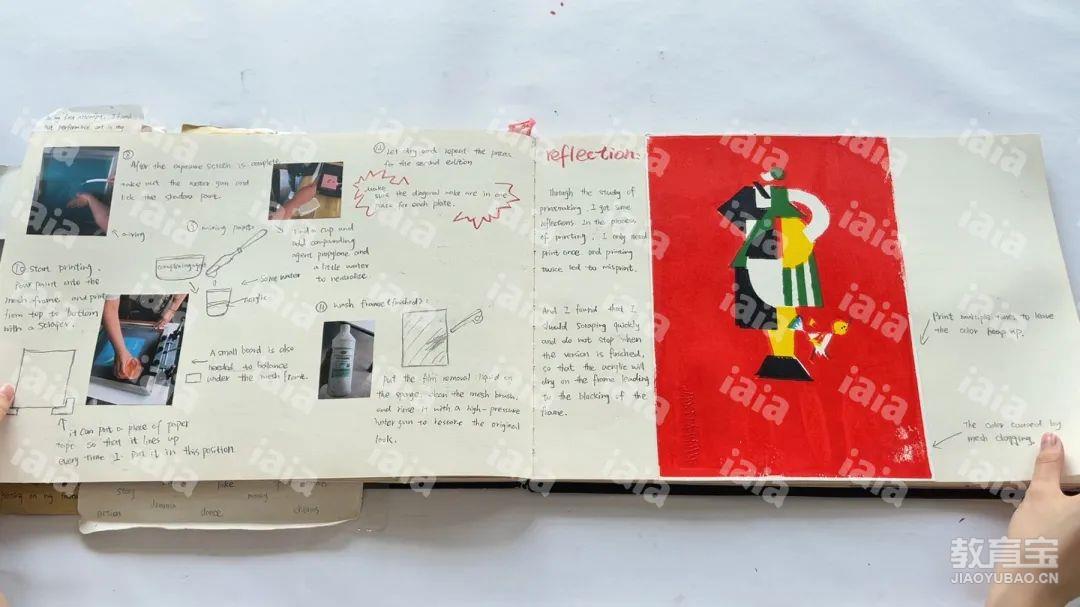 in my first attempt, I found
that performance art is my
⑧ After the exposure screen is complete
take out the water gun and
the shadow part.
drying
⑨ mixing paints
Find a cup and
add compounding
agent propylene and
a little water
to neutralize.
compounding agent
Some water
acrylic
⑩ Start printing.
Pour paint onto the
mesh frame and print
from top to bottom
with a scraper.
A small board is also
needed to balance
under the mesh frame.
it can put a piece of paper
tape so that it lines up
every time I put it in this position.
⑪ wash frame (finished):
Put the film removal liquid on
the sponge, clean the mesh brush,
and rinse it with a high-pressure
water gun to restore the original
look.
⑫ Let dry and repeat the press
for the second edition
Make
sure the diagonal are in one
place for each plate.
reflection:
Through the study of
printmaking, I got some
reflections. In the process
of printing, I only need
print once and printing
twice led to misprint.
And I found that I
should scraping quickly
and do not stop when
the version is finished,
so that the acrylic will
dry on the frame leading
to the blocking of the
frame.
Print multiple times to leave
the color heap up.
The color caused by
mesh clogging.
story
joke
money
action
drama
dance
chorus
iaia
教育宝
JIAOYUBAO.CN